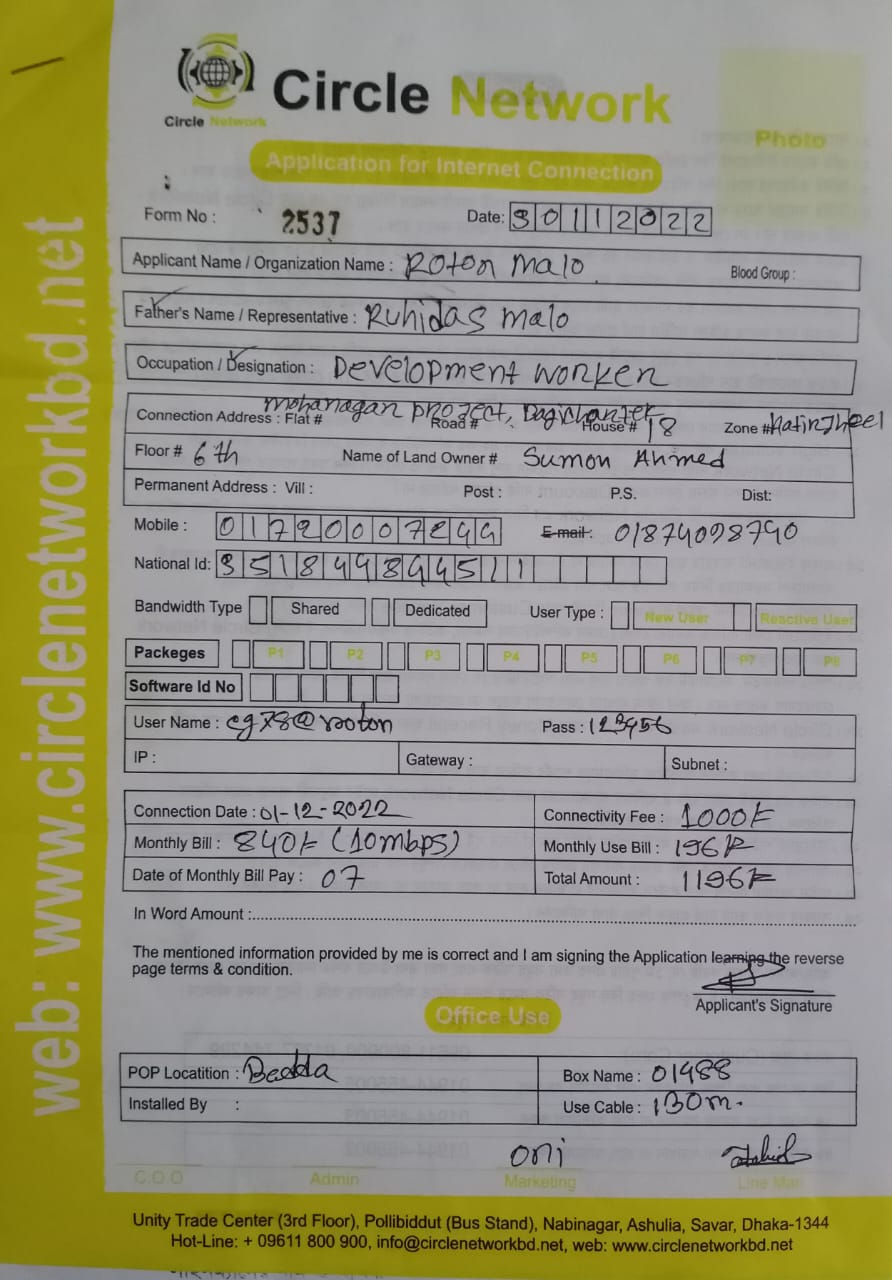 Circle Network
Circle Network
Photo
Application for Internet Connection
Form No : 2537 Date: 30112022
Applicant Name / Organization Name : Roton Malo Blood Group :
Father's Name / Representative : Ruhidas Malo
Occupation / Designation : Development Worker
Mohanagar Project,
Connection Address : Flat # Road # House # 18 Zone # Hatirjheel
Floor # 6th Name of Land Owner # Sumon Ahmed
Permanent Address : Vill : Post : P.S. Dist:
Mobile : E-mail : 01874098790
National Id:
Bandwidth Type Shared Dedicated User Type : New User Reactive User
Packeges P1 P2 P3 P4 P5 P6 P7 P8
Software Id No
User Name : cg78@roton Pass : 123456
IP : Gateway : Subnet :
Connection Date : 01-12-2022 Connectivity Fee : 1000/-
Monthly Bill : 840/- (10mbps) Monthly Use Bill : 196/-
Date of Monthly Bill Pay : 07 Total Amount : 1196/-
In Word Amount :
The mentioned information provided by me is correct and I am signing the Application learning the reverse
page terms & condition.
Applicant's Signature
Office Use
POP Locatition : Badda Box Name : 01488
Installed By : Use Cable : 130m.
Oni
C.O.O Admin Marketing Line Man
Unity Trade Center (3rd Floor), Pollibiddut (Bus Stand), Nabinagar, Ashulia, Savar, Dhaka-1344
Hot-Line: + 09611 800 900, info@circlenetworkbd.net, web: www.circlenetworkbd.net
web: www.circlenetworkbd.net